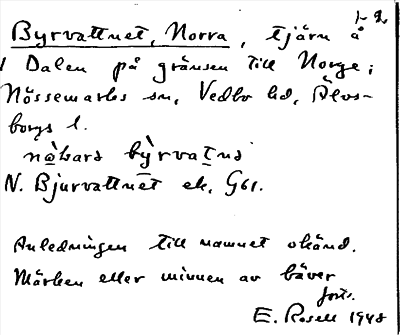 1-2
Byrvattnet, Norra, tjärn å
1 Dalen på gränsen till Norge;
Nössemarks sn, Vedbo hd, Älvs-
borgs l.
byrvatns
N. Bjurvattnet ek, G61.
Anledningen till namnet okänd.
Märken eller minnen av bäver
forts.
E. Rosell 1948